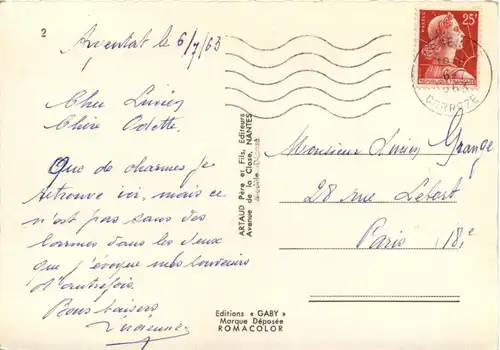 2
Argentat le 6/7/63
Cher Lucien
Chère Odette,
Que de charmes je
retrouve ici, mais ce
n'est pas sans des
larmes dans les yeux
que j'évoque mes souvenirs
d'autrefois.
Bons baisers
ARTAUD Père et Fils, Editeurs
Avenue de la Close, NANTES
Modèle Déposé
Editions « GABY »
Marque Déposée
ROMACOLOR
25F
CORREZE
Monsieur Lucien Grange
28 rue Letort
Paris 18e